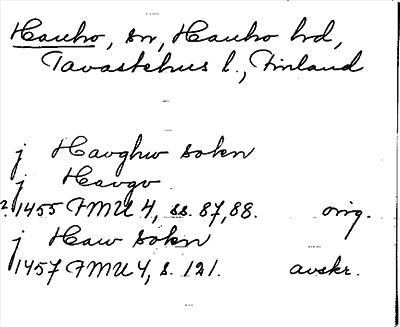 Hauho, sn, Hauho hd,
Tavastehus l., Finland
j Havghw sokn
j Havgv
2. 1455 FMU 4, ss. 87, 88. orig.
j Haw sokn
1457 FMU 4, s. 121. avskr.